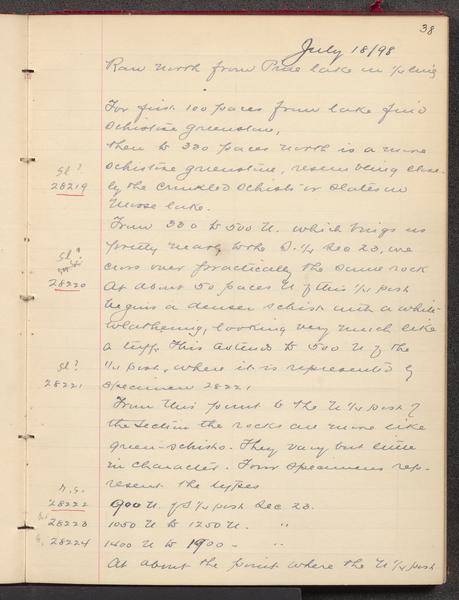 38
July 18/98
Ran north from Pine lake on 1/4 line
For first 100 paces from lake find
schistose greenstone,
then to 330 paces north is a more
Sl ?
schistose greenstone, resembling close-
28219
ly the crinkled schists or slates on
Moose lake.
From 330 to 500 N. which brings us
Sl ?
pretty nearly to the S. 1/4 Sec 23, we
cross over practically the same rock
28220
At about 50 paces N of this 1/4 post
begins a denser schist with a white
weathering, looking very much like
a tuff. This extends to 500 N of the
Sl ?
1/4 post, where it is represented by
28221
specimen 28221
From this point to the N 1/4 post of
the Section the rocks are more like
green-schists. They vary but little
in character. Four specimens rep-
resent the types
28222
900 N. of S 1/4 post Sec 23.
28223
1050 N to 1250 N. "
28224
1400 N to 1900 - "
At about the point where the N 1/4 post